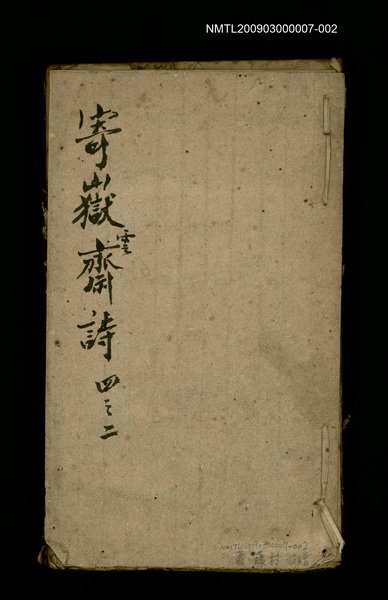 NMTL200903000007-002
寄嶽雲齋詩 四之二
NMTL200903000007-002